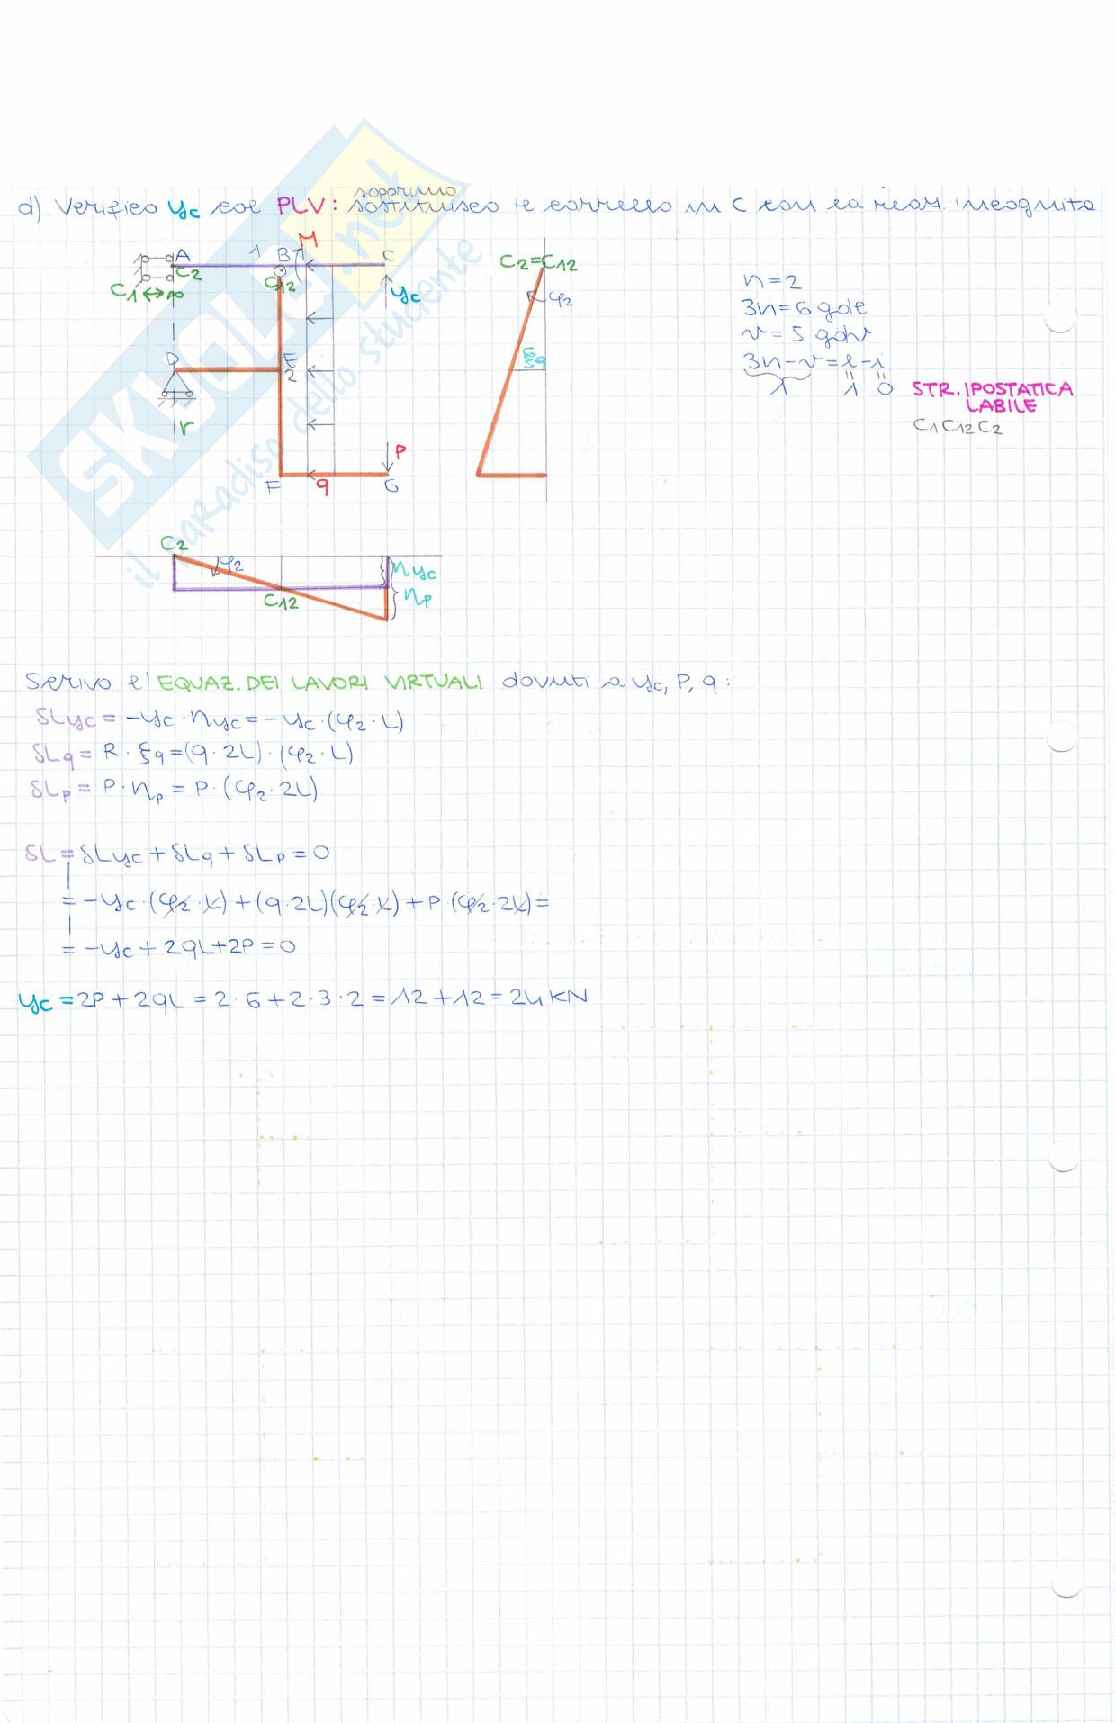 d) Verifico yc col PLV: sopprimo sostituisco il carrello in C con la reaz. incognita
M
A
1
B
C
C2
C12
C1
yc
D
E
2
r
P
F
q
G
C2=C12
φ2
ξq
n=2
3n=6 gdl
v=5 gdv
3n-v=l-i
1
1 0
STR. IPOSTATICA
LABILE
C1C12C2
C2
φ2
ηyc
C12
ηp
SKUOLA.net
il paradiso dello studente
Scrivo l'EQUAZ. DEI LAVORI VIRTUALI dovuti a yc, P, q:
δLyc = -yc·ηyc = -yc·(φ2·L)
δLq = R·ξq = (q·2L)·(φ2·L)
δLp = P·ηp = P·(φ2·2L)
δL = δLyc + δLq + δLp = 0
= -yc·(φ2·L) + (q·2L)(φ2·L) + P·(φ2·2L) =
= -yc + 2qL + 2P = 0
yc = 2P + 2qL = 2·6 + 2·3·2 = 12 + 12 = 24 KN